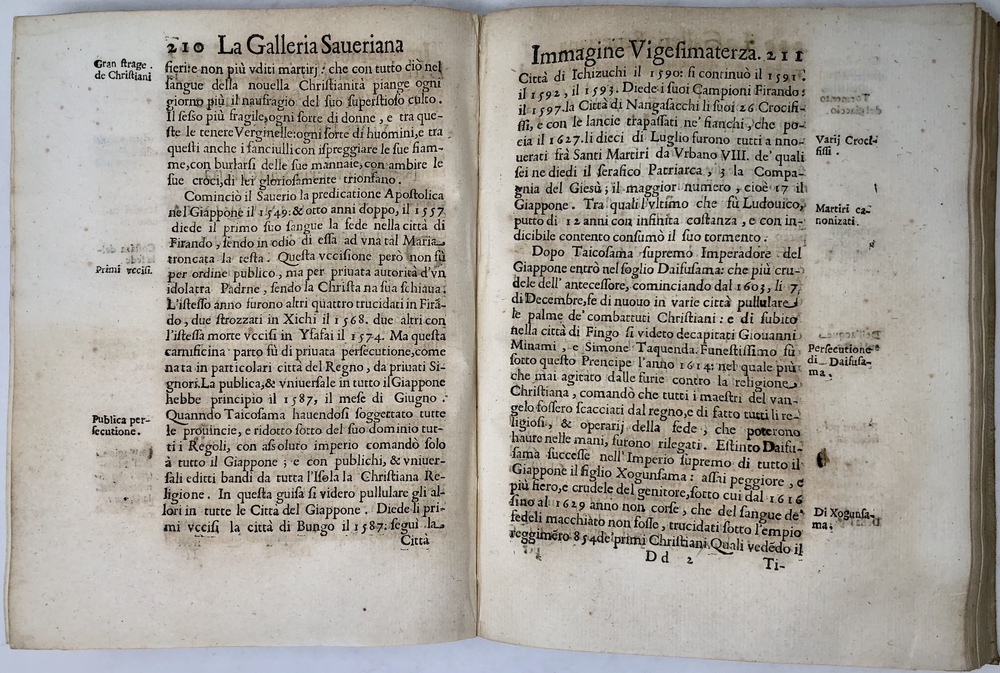 210 La Galleria Saueriana
Gran strage
de Christiani
fierite non più vditi martirj: che con tutto ciò nel
sangue della nouella Christianità piange ogni
giorno più il naufragio del suo superstioso culto.
Il sesso più fragile, ogni sorte di donne, e tra que-
ste le tenere Verginelle: ogni sorte di huomini, e tra
questi anche i fanciulli con ispreggiare le sue fiam-
me, con burlarsi delle sue mannaie, con ambire le
sue croci, di lei gloriosamente trionfano.
Cominciò il Sauerio la predicatione Apostolica
nel Giappone il 1549: & otto anni doppo, il 1557
diede il primo suo sangue la fede nella città di
Firando, sendo in odio di essa ad vna tal Maria
troncata la testa. Questa vccisione però non fù
Primi vccisi.
per ordine publico, ma per priuata autorità d'vn
idolatra Padrne, sendo la Christana sua schiaua.
L'istesso anno furono altri quattro trucidati in Firā-
do, due strozzati in Xichi il 1568. due altri con
l'istessa morte vccisi in Ysafai il 1574. Ma questa
carnificina parto fù di priuata persecutione, come
nata in particolari città del Regno, da priuati Si-
gnori. La publica, & vniuersale in tutto il Giappone
hebbe principio il 1587, il mese di Giugno.
Publica per-
secutione.
Quanndo Taicosama hauendosi soggettato tutte
le prouincie, e ridotto sotto del suo dominio tut-
ti i Regoli, con assoluto imperio comandò solo
à tutto il Giappone; e con publichi, & vniuer-
sali editti bandi da tutta l'Isola la Christiana Re-
ligione. In questa guisa si videro pullulare gli al-
lori in tutte le Città del Giappone. Diede li pri-
mi vccisi la città di Bungo il 1587: seguì la
Città
Immagine Vigesimaterza. 211
Città di Ichizuchi il 1590: si continuò il 1591.
il 1592, il 1593. Diede i suoi Campioni Firando:
il 1597. la Città di Nangasacchi li suoi 26 Crocifi-
ssi, e con le lancie trapassati ne' fianchi, che po-
Varij Croci-
fissi.
cia il 1627. li dieci di Luglio furono tutti anno-
uerati frà Santi Martiri da Vrbano VIII. de' quali
sei ne diedi il serafico Patriarca, 3 la Compa-
gnia del Giesù; il maggior numero, cioè 17 il
Giappone. Tra quali l'vltimo che fù Ludouico,
Martiri ca-
nonizati.
putto di 12 anni con infinita costanza, e con in-
dicibile contento consumò il suo tormento.
Dopo Taicosama supremo Imperadore del
Giappone entrò nel soglio Daifusama: che più cru-
dele dell' antecessore, cominciando dal 1603, li 7
di Decembre, fe di nuouo in varie città pullulare
le palme de' combattuti Christiani: e di subito
nella città di Fingo si videto decapitati Giouanni
Minami, e Simone Taquenda. Funestissimo fù
Persecutione
di Daifusa-
ma.
sotto questo Prencipe l'anno 1614: nel quale più
che mai agitato dalle furie contro la religione
Christiana, comandò che tutti i maestri del van-
gelo fossero scacciati dal regno, e di fatto tutti li re-
ligiosi, & operarij della fede, che poterono
haure nelle mani, furono rilegati. Estinto Daifu-
sama successe nell' Imperio supremo di tutto il
Giappone il figlio Xogunsama: assai peggiore, e
più fiero, e crudele del genitore, sotto cui dal 1616
sino al 1629 anno non corse, che del sangue de'
Di Xogunsa-
ma;
fedeli macchiato non fosse, trucidati sotto l'empio
reggimēto 854 de' primi Christiani. Quali vedēdo il
D d 2 Ti-